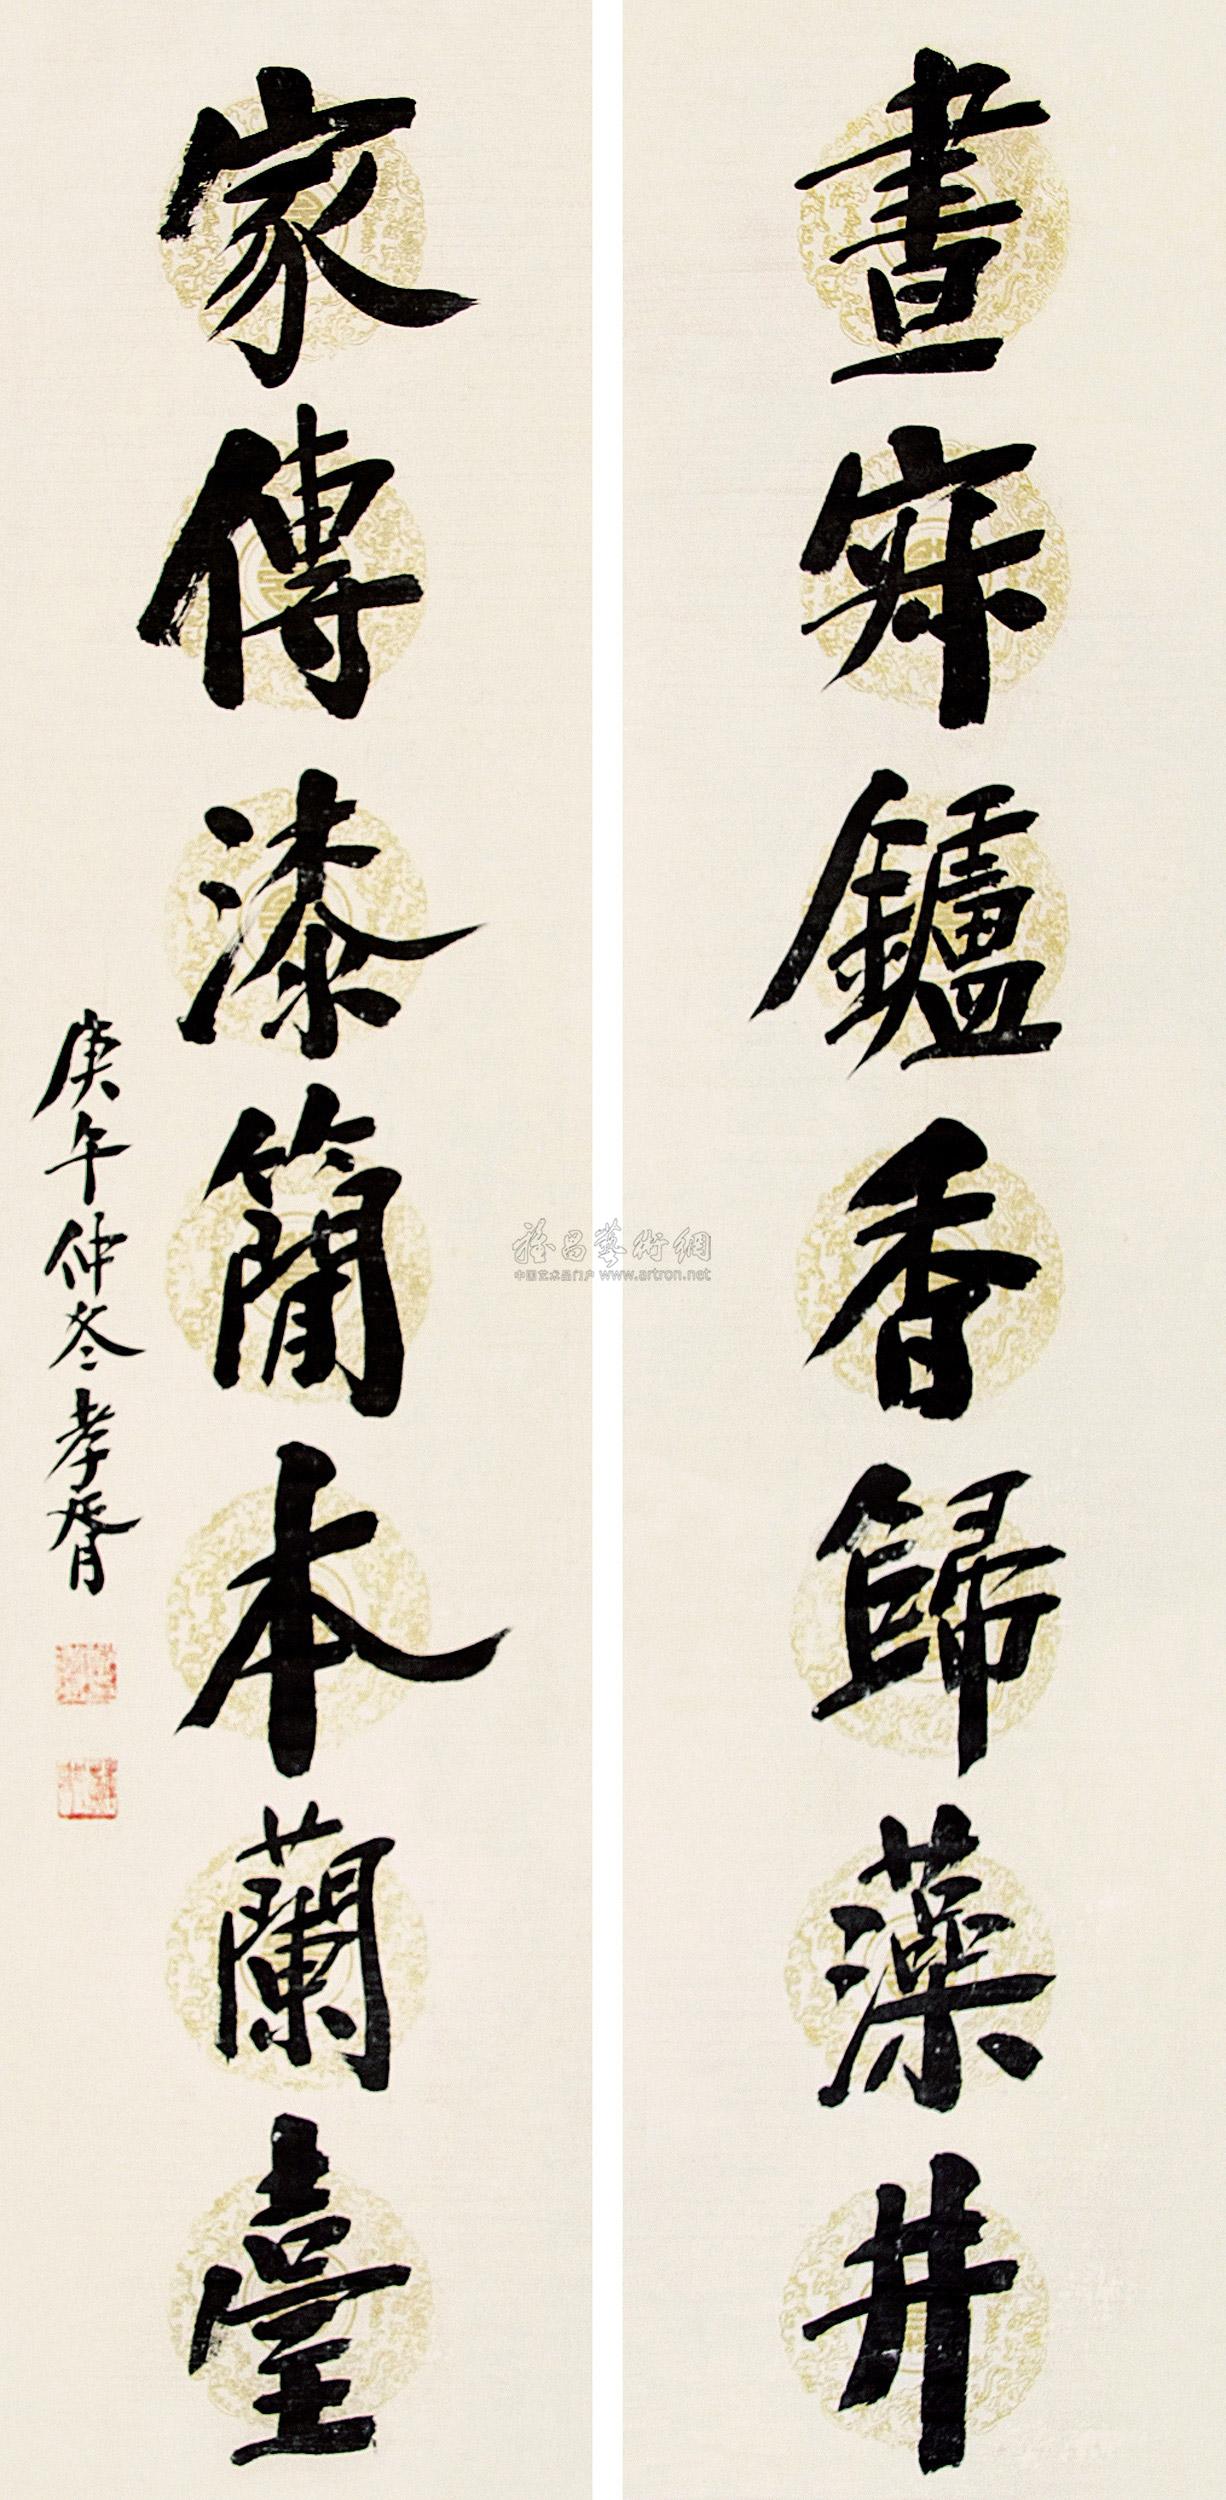 晝寂鑪香歸藻井
家傳漆簡本蘭臺
庚午仲冬孝胥
雅昌藝術網
中国艺术品门户 www.artron.net